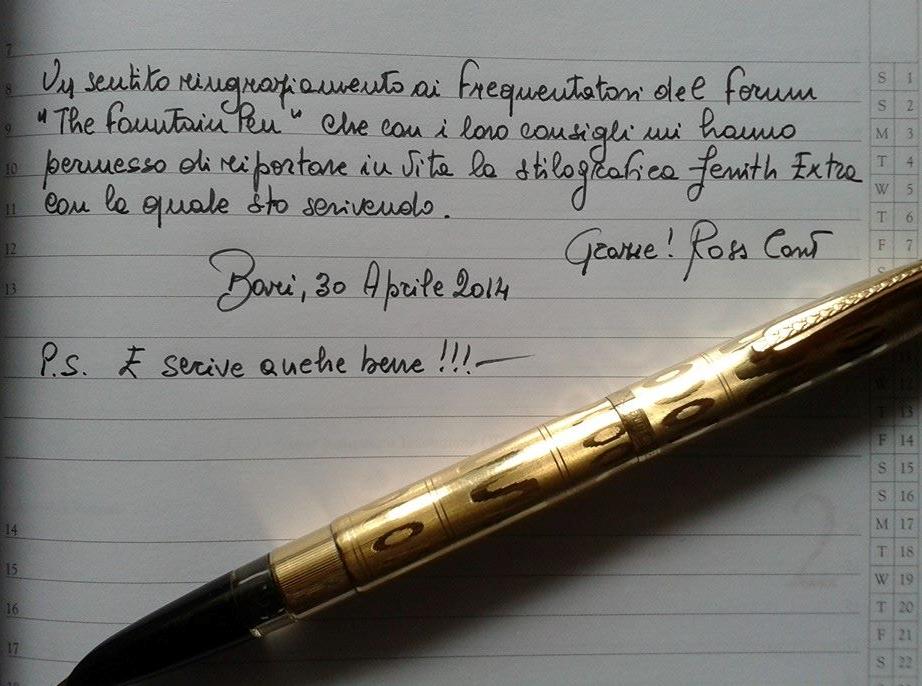 Un sentito ringraziamento ai frequentatori del forum
"The Fountain Pen" che con i loro consigli mi hanno
permesso di riportare in vita la stilografica Zenith Extra
con la quale sto scrivendo.
Grazie! Ross Cont
Bari, 30 Aprile 2014
P.S. E scrive anche bene !!!
7
8
9
10
11
12
13
14
15
16
17
S 1
S 2
M 3
T 4
W 5
T 6
F 7
S
T 13
F 14
S 15
S 16
M 17
T 18
W 19
T 20
F 21
S 22